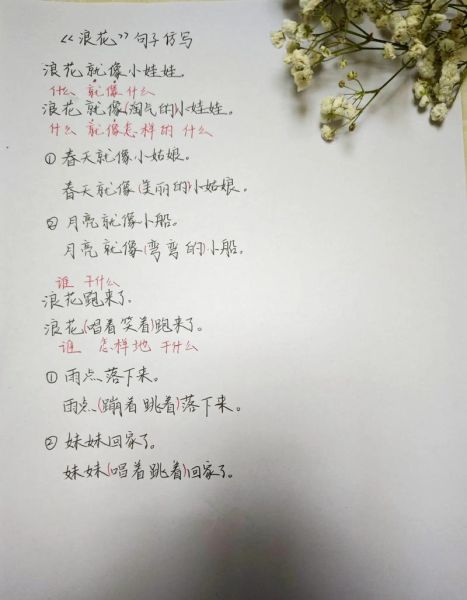 《浪花》句子仿写
浪花就像小娃娃。
什么 就像什么
浪花就像(淘气的)小娃娃。
什么 就像怎样的 什么
①春天就像小姑娘。
春天就像(美丽的)小姑娘。
②月亮就像小船。
月亮就像(弯弯的)小船。
谁 干什么
浪花跑来了。
浪花(唱着笑着)跑来了。
谁 怎样地 干什么
①雨点落下来。
雨点(蹦着跳着)落下来。
②妹妹回家了。
妹妹(唱着跳着)回家了。